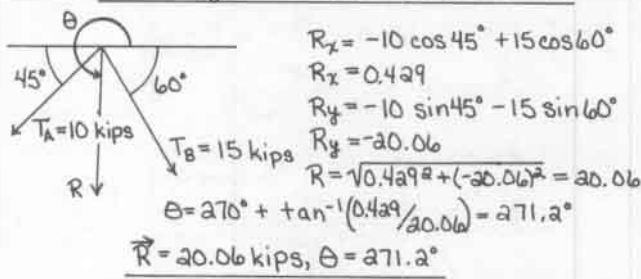 θ
45°
60°
T_A = 10 kips
T_B = 15 kips
R
R_x = -10 cos 45° + 15 cos 60°
R_x = 0.429
R_y = -10 sin 45° - 15 sin 60°
R_y = -20.06
R = √0.429² + (-20.06)² = 20.06
θ = 270° + tan⁻¹(0.429/20.06) = 271.2°
R⃗ = 20.06 kips, θ = 271.2°